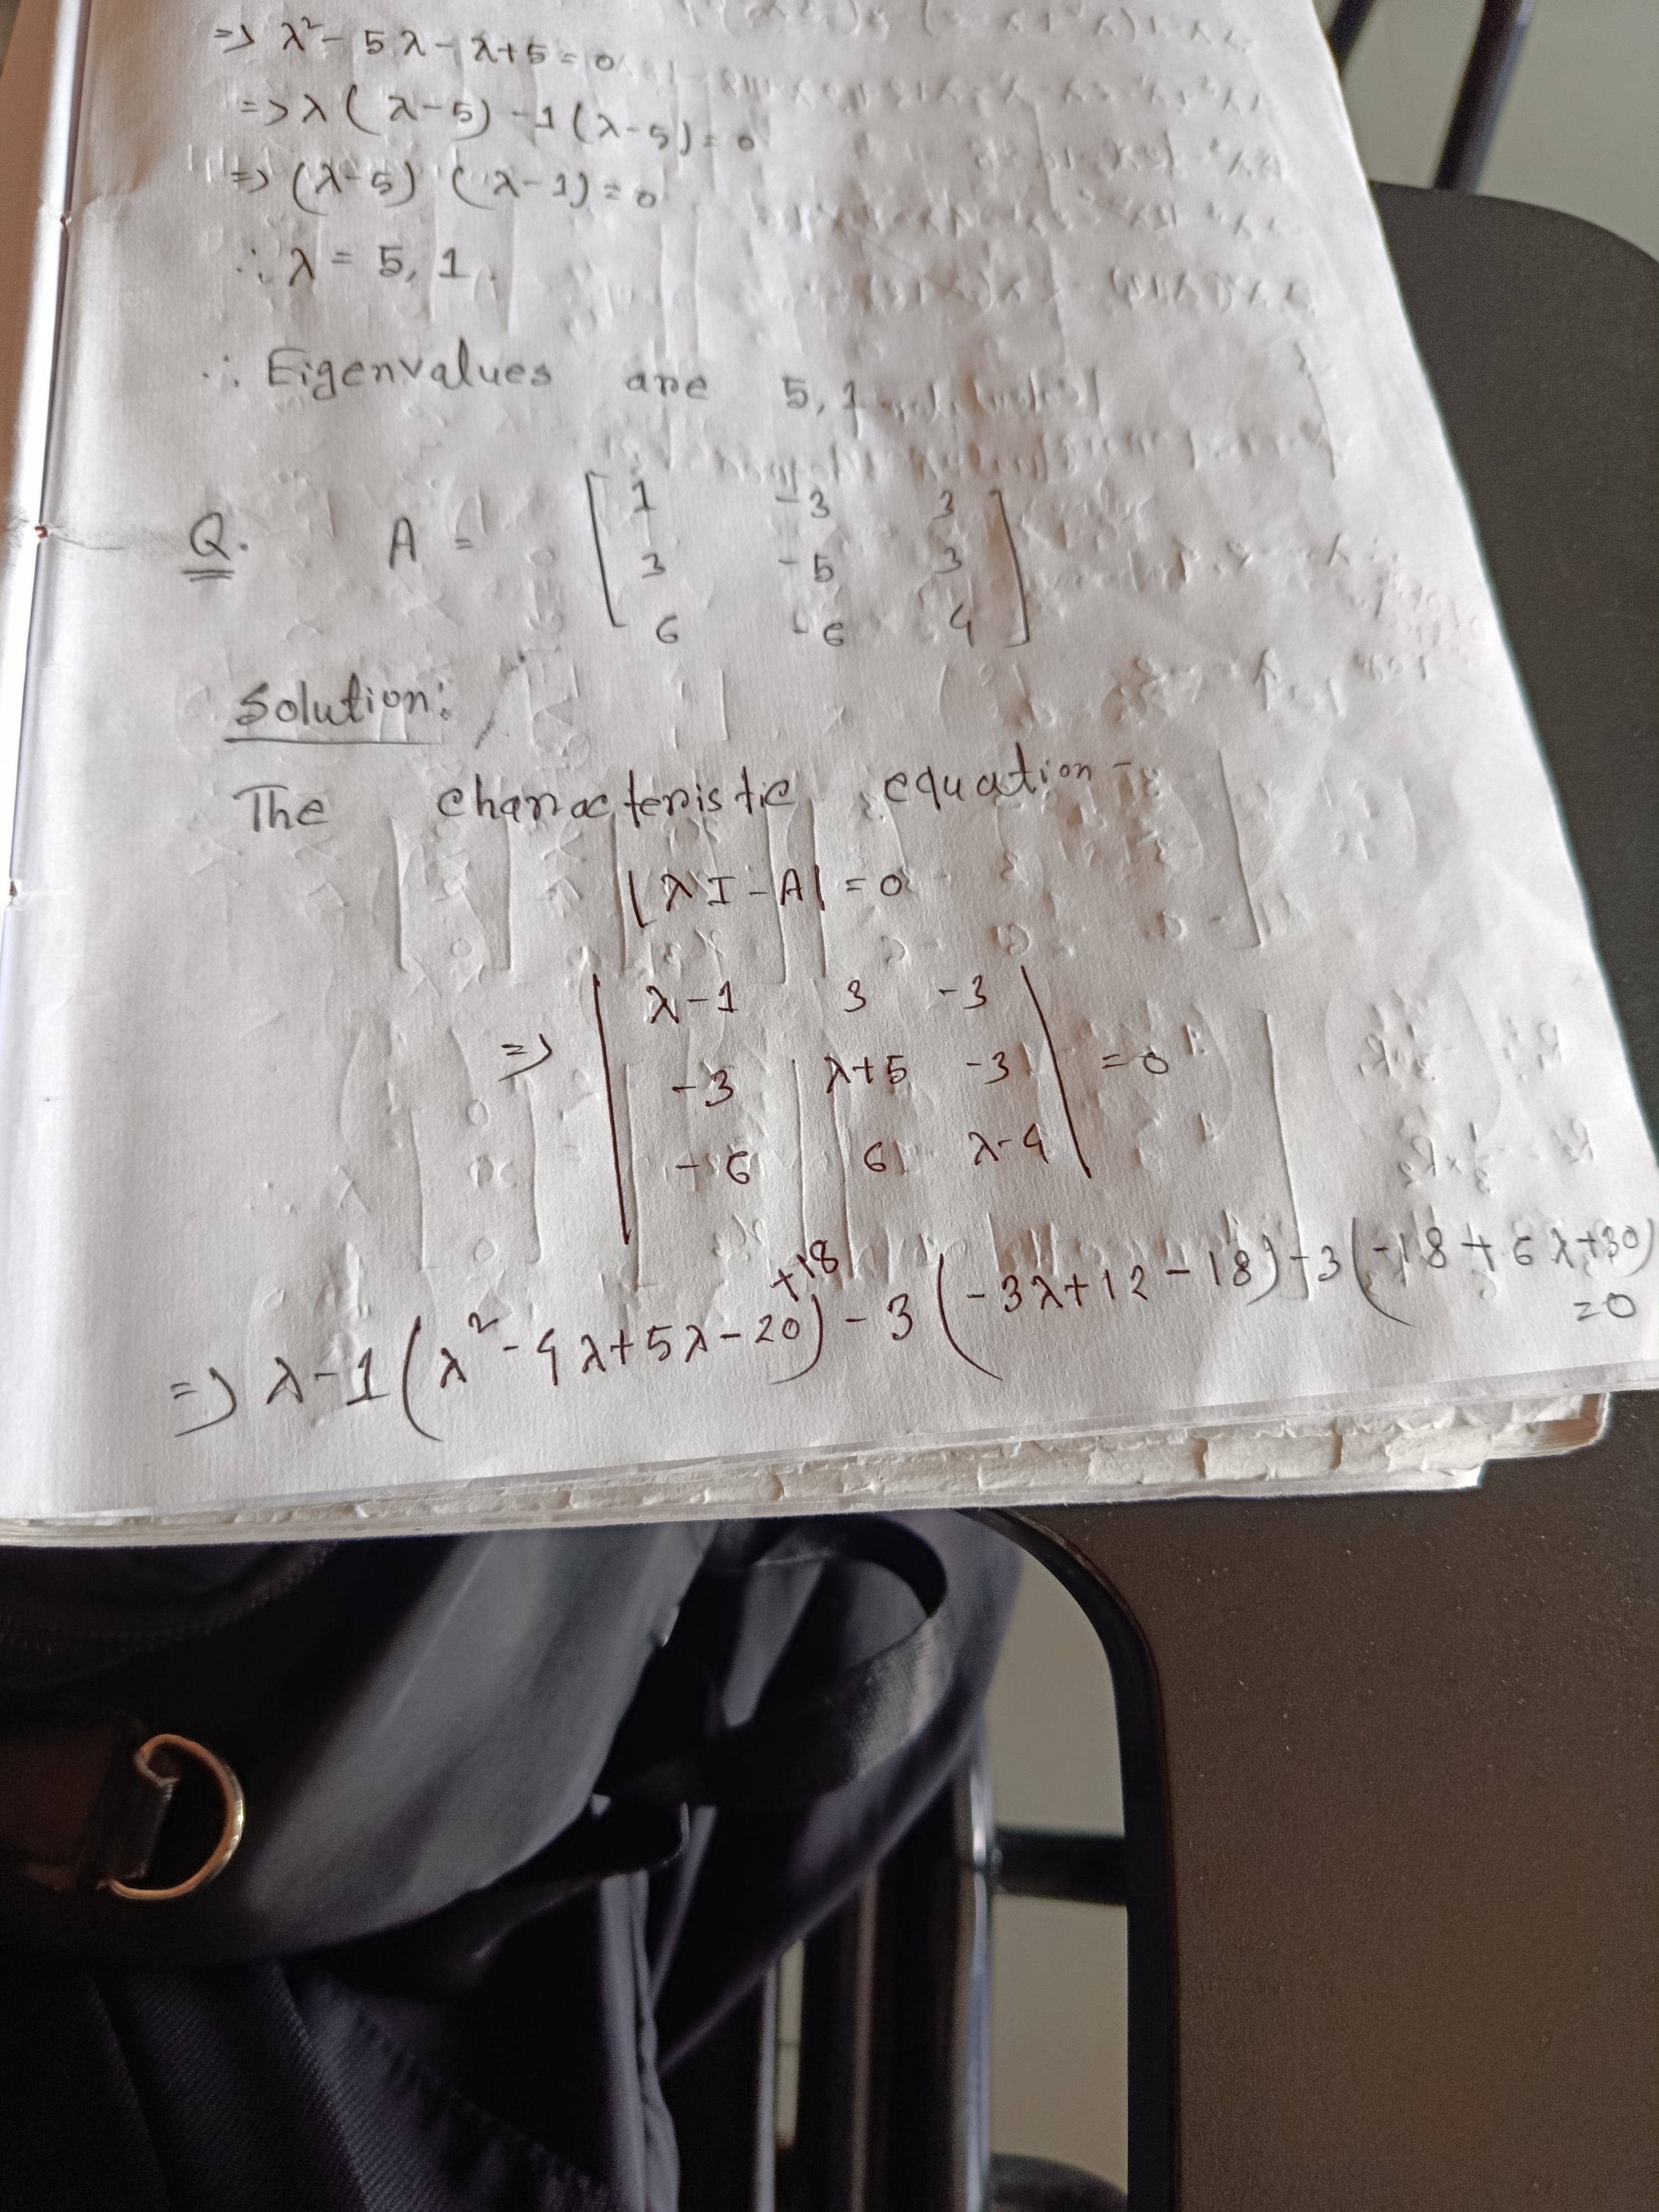 => λ² - 5λ - λ + 5 = 0
=> λ(λ-5) -1(λ-5) = 0
=> (λ-5) (λ-1) = 0
∴ λ = 5, 1.
∴ Eigenvalues are 5, 1
Q. A = [1 -3 3
3 -5 3
6 -6 4]
Solution:
The characteristic equation -
|λI - A| = 0
=> |λ-1 3 -3
-3 λ+5 -3
-6 6 λ-4| = 0
=> λ-1(λ² - 4λ + 5λ - 20 +18) - 3(-3λ + 12 - 18) - 3(-18 + 6λ + 30)
= 0